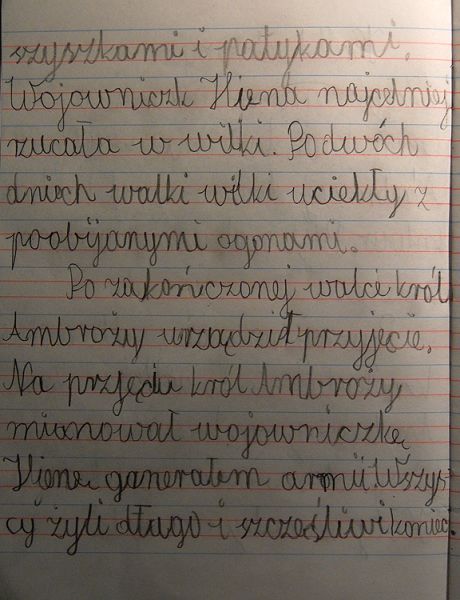 szyszkami i patykami.
Wojowniczk Hiena najcelniej
rzucała w wilki. Po dwóch
dniach walki wilki uciekły z
poobijanymi ogonami.
Po zakończonej walce król
Ambroży urządził przyjęcie.
Na przjęciu król Ambroży
mianował wojowniczkę
Hienę ganerałem armii Wszys-
cy żyli długo i szczęśliwi koniec.